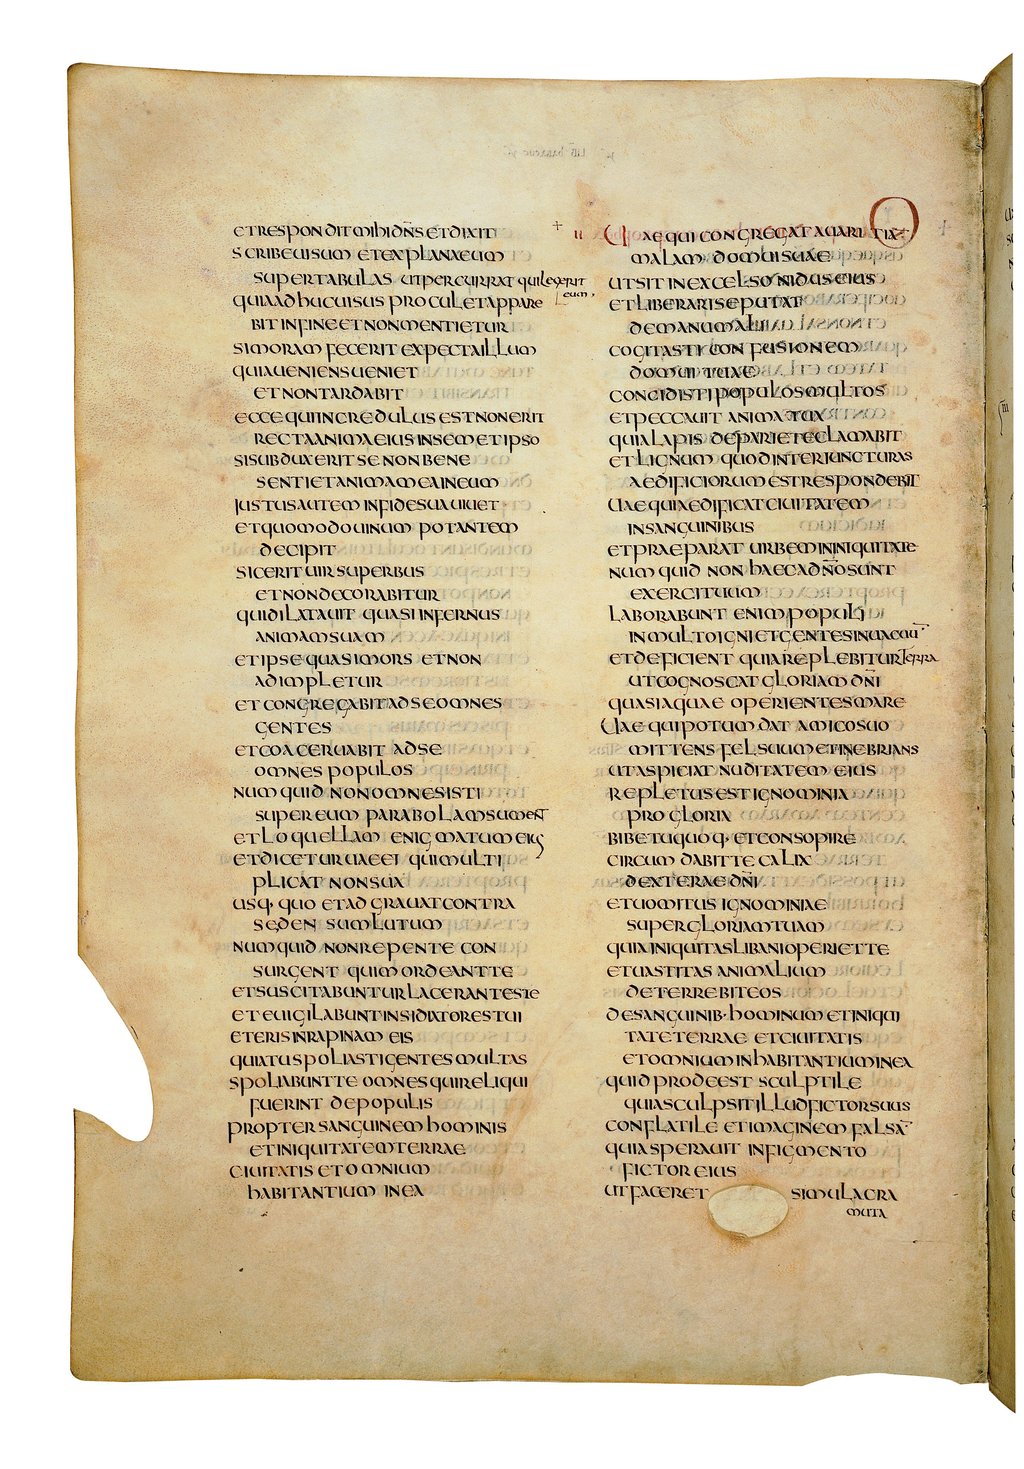 ET RESPONDIT MIHI DN̄S ET DIXIT
SCRIBE UISUM ET EXPLANA EUM
SUPER TABULAS UT PERCURRAT QUI LEGERIT
EUM
QUIA ADHUC UISUS PROCUL ET APPARE
BIT IN FINE ET NON MENTIETUR
SI MORAM FECERIT EXPECTA ILLUM
QUIA UENIENS UENIET
ET NON TARDABIT
ECCE QUI INCREDULUS EST NON ERIT
RECTA ANIMA EIUS IN SEMETIPSO
SI SUBDUXERIT SE NON BENE
SENTIET ANIMA MEA IN EUM
IUSTUS AUTEM IN FIDE SUA UIUET
ET QUOMODO UINUM POTANTEM
DECIPIT
SIC ERIT UIR SUPERBUS
ET NON DECORABITUR
QUI DILATAUIT QUASI INFERNUS
ANIMAM SUAM
ET IPSE QUASI MORS ET NON
ADIMPLETUR
ET CONGREGABIT AD SE OMNES
GENTES
ET COACERUABIT AD SE
OMNES POPULOS
NUMQUID NON OMNES ISTI
SUPER EUM PARABOLAM SUMENT
ET LOQUELLAM ENIGMATUM EIUS
ET DICETUR UAE EI QUI MULTI
PLICAT NON SUA
USQ· QUO ET ADGRAUAT CONTRA
SE DENSUM LUTUM
NUMQUID NON REPENTE CON
SURGENT QUI MORDEANT TE
ET SUSCITABUNTUR LACERANTES TE
ET EUIGILABUNT INSIDIATORES TUI
ET ERIS IN RAPINAM EIS
QUIA TU SPOLIASTI GENTES MULTAS
SPOLIABUNT TE OMNES QUI RELIQUI
FUERINT DE POPULIS
PROPTER SANGUINEM HOMINIS
ET INIQUITATEM TERRAE
CIUITATIS ET OMNIUM
HABITANTIUM IN EA
II UAE QUI CONGREGAT AUARITIA
MALAM DOMUI SUAE
UT SIT IN EXCELSO NIDUS EIUS
ET LIBERARI SE PUTAT
DE MANU MALI
COGITASTI CONFUSIONEM
DOMUI TUAE
CONCIDISTI POPULOS MULTOS
ET PECCAUIT ANIMA TUA
QUIA LAPIS DE PARIETE CLAMABIT
ET LIGNUM QUOD INTER IUNCTURAS
AEDIFICIORUM EST RESPONDEBIT
UAE QUI AEDIFICAT CIUITATEM
IN SANGUINIBUS
ET PRAEPARAT URBEM IN INIQUITATE
NUMQUID NON HAEC A DN̄O SUNT
EXERCITUUM
LABORABUNT ENIM POPULI
IN MULTO IGNI ET GENTES IN UACUŪ
ET DEFICIENT QUIA REPLEBITUR TERRA
UT COGNOSCAT GLORIAM DN̄I
QUASI AQUAE OPERIENTES MARE
UAE QUI POTUM DAT AMICO SUO
MITTENS FEL SUUM ET INEBRIANS
UT ASPICIAT NUDITATEM EIUS
REPLETUS EST IGNOMINIA
PRO GLORIA
BIBE TU QUOQ· ET CONSOPIRE
CIRCUMDABIT TE CALIX
DEXTERAE DN̄I
ET UOMITUS IGNOMINIAE
SUPER GLORIAM TUAM
QUIA INIQUITAS LIBANI OPERIET TE
ET UASTITAS ANIMALIUM
DETERREBIT EOS
DE SANGUINIB· HOMINUM ET INIQUI
TATE TERRAE ET CIUITATIS
ET OMNIUM INHABITANTIUM IN EA
QUID PRODEEST SCULPTILE
QUIA SCULPSIT ILLUD FICTOR SUUS
CONFLATILE ET IMAGINEM FALSĀ
QUIA SPERAUIT IN FIGMENTO
FICTOR EIUS
UT FACERET SIMULACRA
MUTA